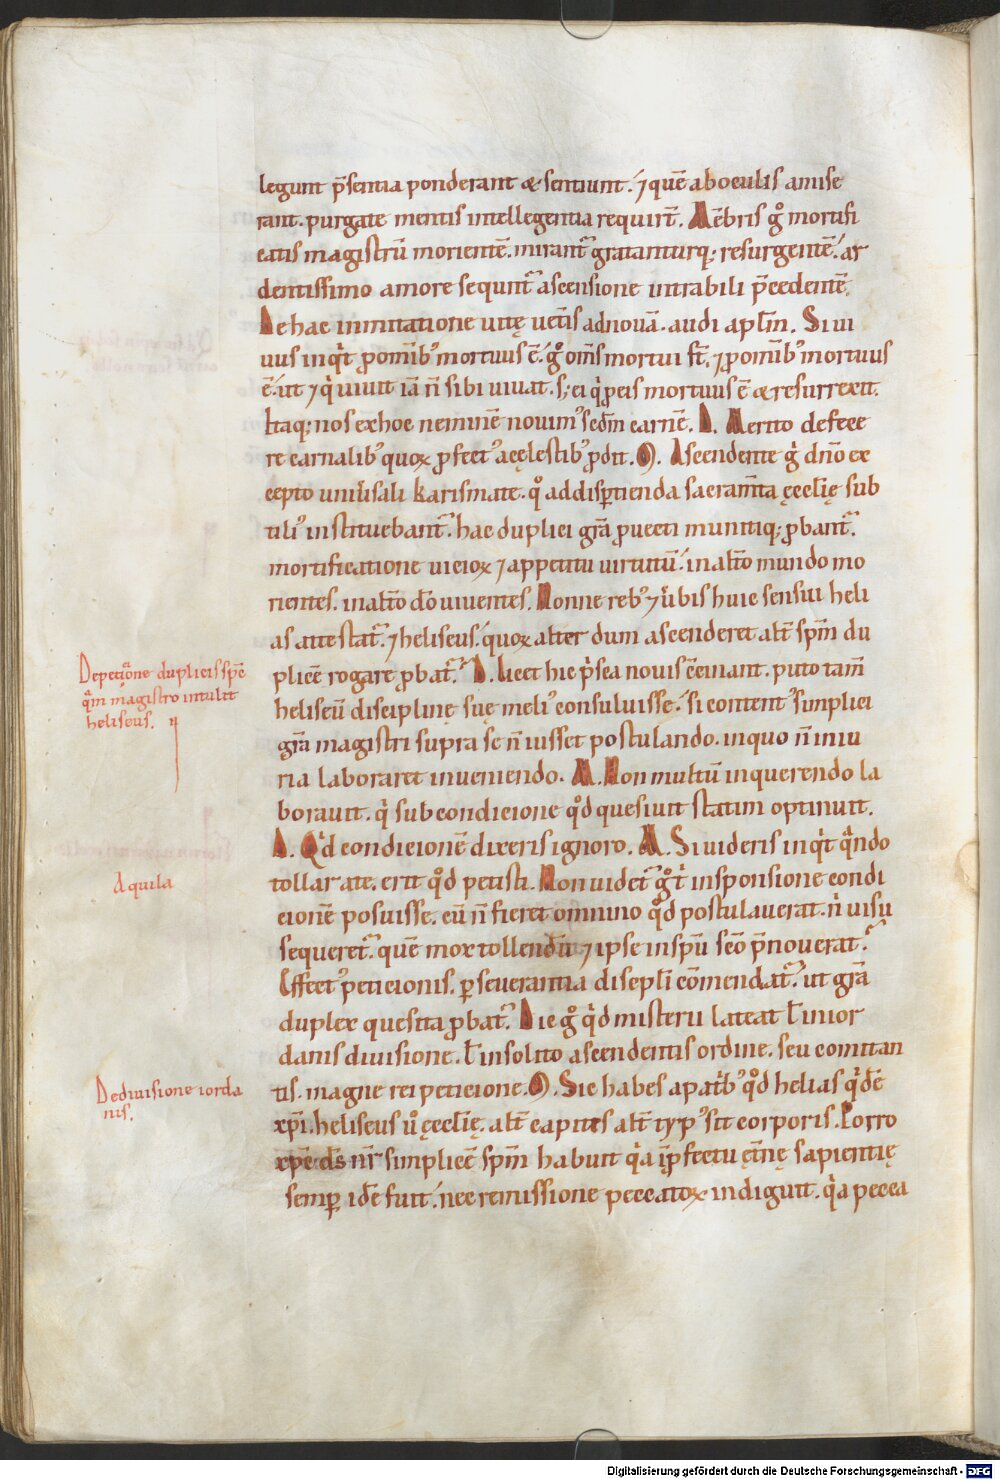 legunt p̄sentia ponderant & sentiunt. ⁊ quē ab oculis amise
rant. purgate mentis intellegentia requirt̄. Mēbris g̊ mortifi
catis magistrū morientē. mirant᷑ gratanturq; resurgentē. ar
dentissimo amore sequnt᷑ ascensione mirabili p̄cedentē.
De hac inmitatione uitę uet̄is ad nouā. audi apl̄m. Si ui
uus inqͥt pro omīb᷒ mortuus ē. g̊ om̄s mortui st̄. ⁊ pro omīb᷒ mortuus
ē. ut ⁊ qͥ uiuit iā n̄ sibi uiuat. s; ei qͥ pro eis mortuus ē & resurrexit.
Itaq; nos ex hoc neminē nouim᷒ scd̄m carnē. D. Merito defece
re carnalib᷒ quoꝝ profect᷒ a cęlestib᷒ prodit. O. Ascendente g̊ dn̄o ex
cepto uniu̅sali karismate. qͦ ad disꝑtienda sacram̄ta ęcclīę sub
tili᷒ instituebant᷑. hac duplici gr̄a prouecti munitiq; probant᷑.
mortificatione uicioꝝ ⁊ appetitu uirtutū. in alt̄o mundo mo
rientes. in alt̄o dō uiuentes. Nonne reb᷒ ⁊ ūbis huic sensui heli
as attestat᷑. ⁊ heliseus. quoꝝ alter dum ascenderet alt̄ sp̄m du
plicē rogare probat᷑. D. Licet hic p̄sea nouis c̄cinant. puto tam̄
heliseū disciplinę suę meli᷒ consuluisse. si content᷒ simplici
gr̄a magistri supra se n̄ iisset postulando. in quo n̄ iniu
ria laboraret inueniendo. M. Non multū in querendo la
borauit. qͥ sub condicione qͦd quesiuit statim optinuit.
D. Qͥd condicionē dixeris ignoro. M. Si uideris inqͥt qͣndo
tollar a te. erit qͦd petisti. Non uidet᷑ g̊ t̄ in sponsione condi
cionē posuisse. cū n̄ fieret omnino qͦd postulauerat. n̄ uisu
sequeret᷑. quē mox tollendū ⁊ ipse in sp̄u sc̄o p̄nouerat.
Effect᷒ peticionis. ꝑseuerantia discipl̄i cōmendat᷑. ut gr̄a
duplex quesita probat᷑. D ic g̊ qͥd misterii lateat l̄ in ior
danis diuisione. l̄ insolito ascendentis ordine. seu comitan
tis. magne rei peticione. O. Sic habes a patͥb᷒ qͦd helias qͥdē
xp̄i. heliseus ů ęcclīę. alt̄ capitis alt̄ typ᷒ sit corporis. Porro
xp̄c d̄s nr̄ simplicē sp̄m habuit qͥa ip̄ ꝑfectu ęt̄nę sapientię
semꝑ idē fuit. nec remissione peccatoꝝ indiguit. qͥa pecca
De petic̄one duplicis sp̄c
qͣm magistro intulit
heliseus.
Aquila
De diuisione iorda
nis.
Digitalisierung gefördert durch die Deutsche Forschungsgemeinschaft - DFG